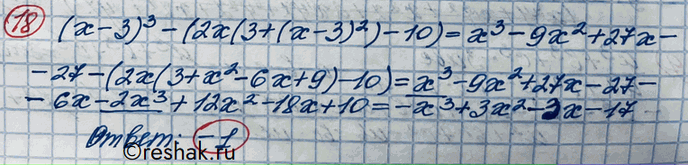 18 (x-3)³-(2x(3+(x-3)²)-10)=x³-9x²+27x-
-27-(2x(3+x²-6x+9)-10)=x³-9x²+27x-27-
-6x-2x³+12x²-18x+10=-x³+3x²-3x-17
Ответ: -1
©reshak.ru